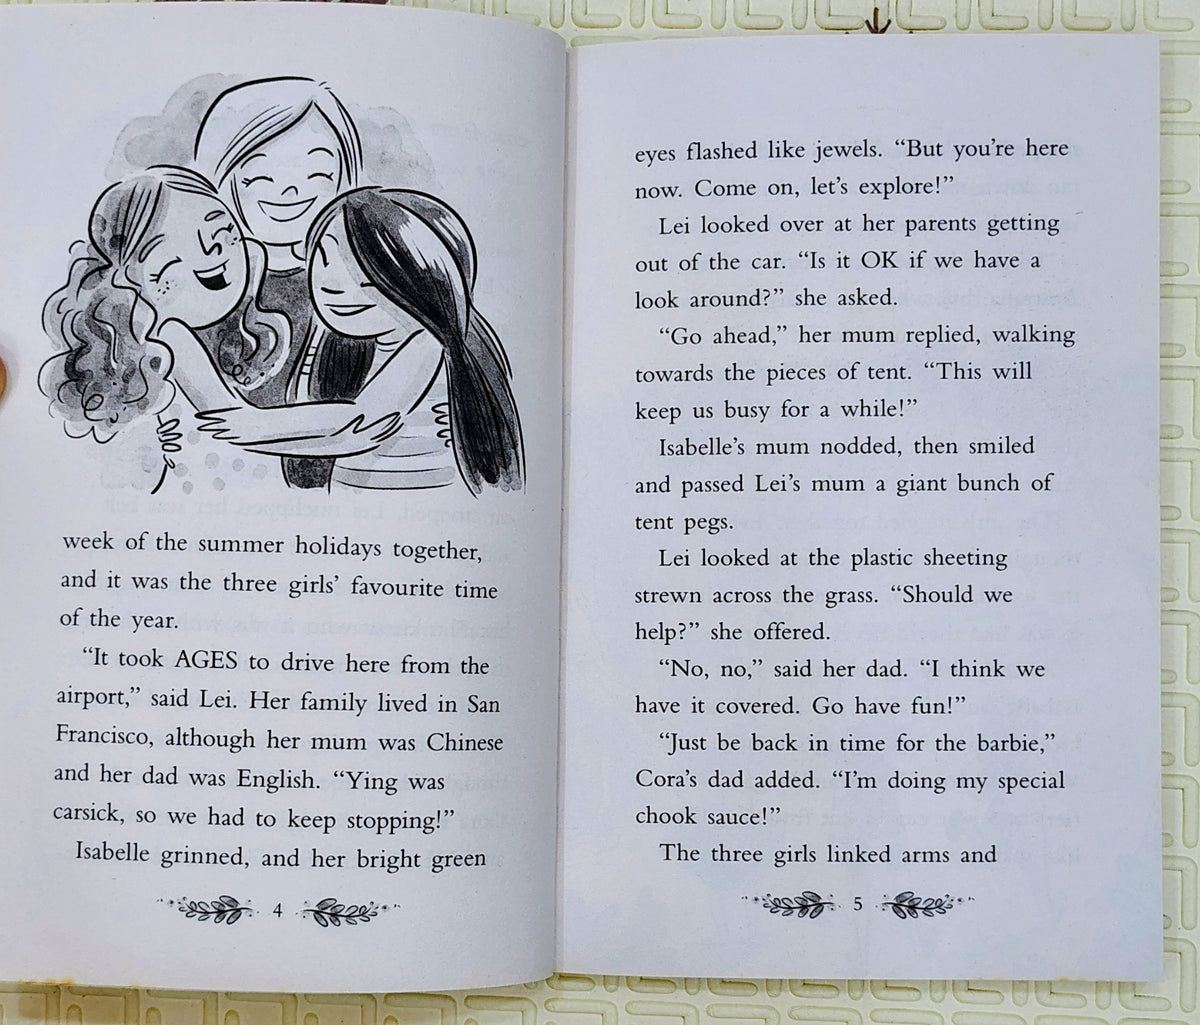 week of the summer holidays together,
and it was the three girls’ favourite time
of the year.
“It took AGES to drive here from the
airport,” said Lei. Her family lived in San
Francisco, although her mum was Chinese
and her dad was English. “Ying was
carsick, so we had to keep stopping!”
Isabelle grinned, and her bright green
4
eyes flashed like jewels. “But you’re here
now. Come on, let’s explore!”
Lei looked over at her parents getting
out of the car. “Is it OK if we have a
look around?” she asked.
“Go ahead,” her mum replied, walking
towards the pieces of tent. “This will
keep us busy for a while!”
Isabelle’s mum nodded, then smiled
and passed Lei’s mum a giant bunch of
tent pegs.
Lei looked at the plastic sheeting
strewn across the grass. “Should we
help?” she offered.
“No, no,” said her dad. “I think we
have it covered. Go have fun!”
“Just be back in time for the barbie,”
Cora’s dad added. “I’m doing my special
chook sauce!”
The three girls linked arms and
5